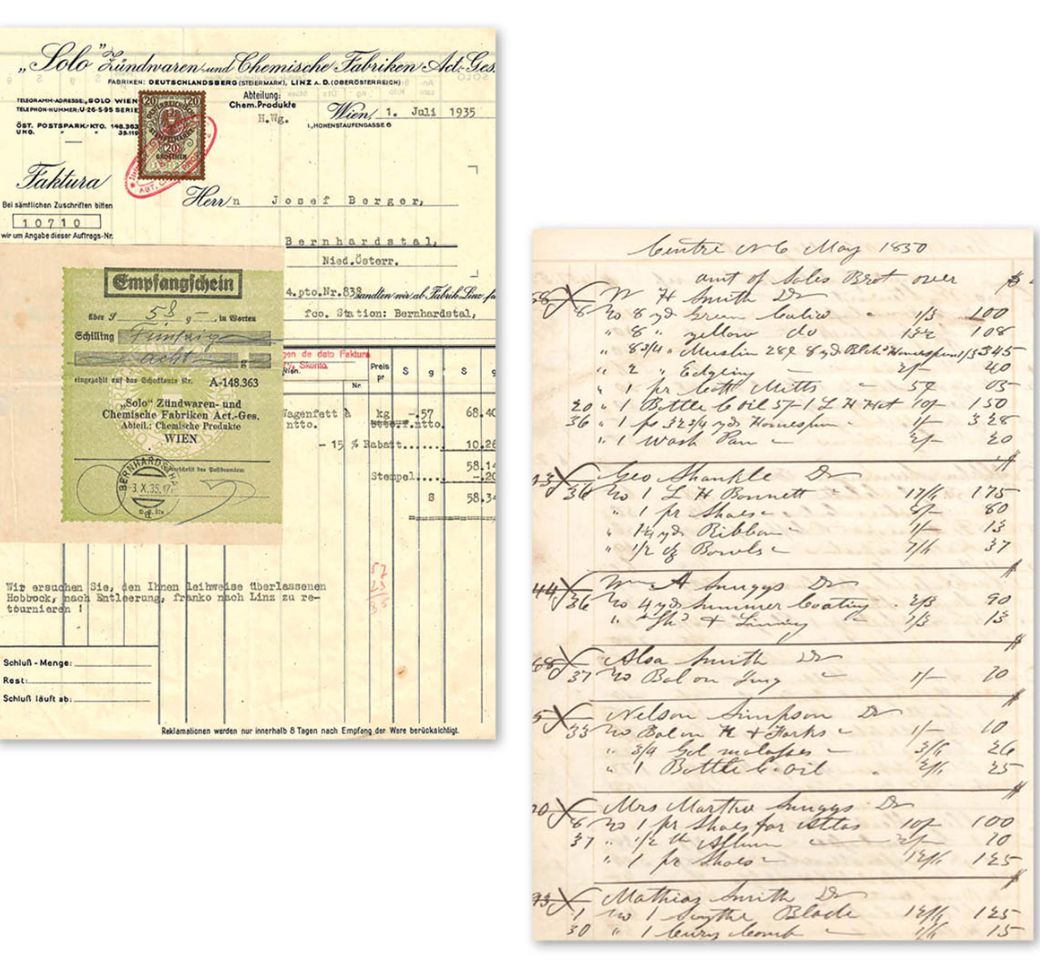 „Solo" Zündwaren und Chemische Fabriken Act.-Ges.
FABRIKEN: DEUTSCHLANDSBERG (STEIERMARK), LINZ A. D. (OBERÖSTERREICH)
TELEGRAMM-ADRESSE: „SOLO WIEN
TELEPHON-NUMMER: U-26-5-95 SERIE
ÖST. POSTSPARK.-KTO. 148.363
UNG. " "
Abteilung:
Chem. Produkte
H.Wg.
Wien, 1. Juli 1935
I., HOHENSTAUFENGASSE 6
20 20
20
GROSCHEN
Faktura
Bei sämtlichen Zuschriften bitten
10710
wir um Angabe dieser Auftrags-Nr.
Herrn Josef Berger,
Bernhardstal,
Nied.Österr.
4.pto.Nr.838 sandten wir ab Fabrik Linz
fco. Station: Bernhardstal,
gen de dato Faktura
% Skonto.
Nr. Preis pr S g S g
Wagenfett à kg -.57 68.40
ntto. ntto.
- 15 % Rabatt..... 10.26
58.14
Stempel..... -.20
S 58.34
Empfangschein
über S 58 g -, in Worten
Schilling Fünfzig
acht g
eingezahlt auf das Scheckkonto Nr. A-148.363
„Solo" Zündwaren- und
Chemische Fabriken Act.-Ges.
Abteil.: Chemische Produkte
WIEN
BERNHARDSTHAL
-3.X.35.17
Wir ersuchen Sie, den Ihnen leihweise überlassenen
Hobbock, nach Entleerung, franko nach Linz zu re-
tournieren !
Schluß - Menge:
Rest:
Schluß läuft ab:
Reklamationen werden nur innerhalb 8 Tagen nach Empfang der Ware berücksichtigt.
Centre N C May 1850
amt of Sales Brot over $
W H Smith Dr
8 To 8 yd Green Calico 1/3 100
" 8 " yellow do 108
" 8 3/4 " Muslin 8 yd Homespun 345
" 2 " Edgeing 40
" 1 pr Cott Mitts 05
20 " 1 Bottle C oil 5/- 1 L H Hat 10/- 150
36 " 1 ps 32 3/4 yds Homespun 1/- 328
" 1 Wash Pan 20
Geo Shankle Dr
36 To 1 L H Bonnett 17/6 175
" 1 pr Shoes 80
" Ribbon 1/- 13
" 1/2 Bowls 37
44 Wm A Suggs Dr
36 To 4 yd Summer Coating 90
" & Lining 1/3 13
68 Alsa Smith Dr
37 To Bal on Jug 1/- 10
5 Nelson Simpson Dr
33 To Bal on K & Forks 1/- 10
" 3/4 Gal molasses 26
" 1 Bottle C oil 25
Mrs Martha Suggs Dr
6 To 1 pr Shoes for 10/- 100
37 " 1/2 lb Allum 10
" 1 pr Shoes 12/6 125
Mathias Smith Dr
1 To 1 Scythe Blade 12/6 125
30 " 1 Curry Comb 15